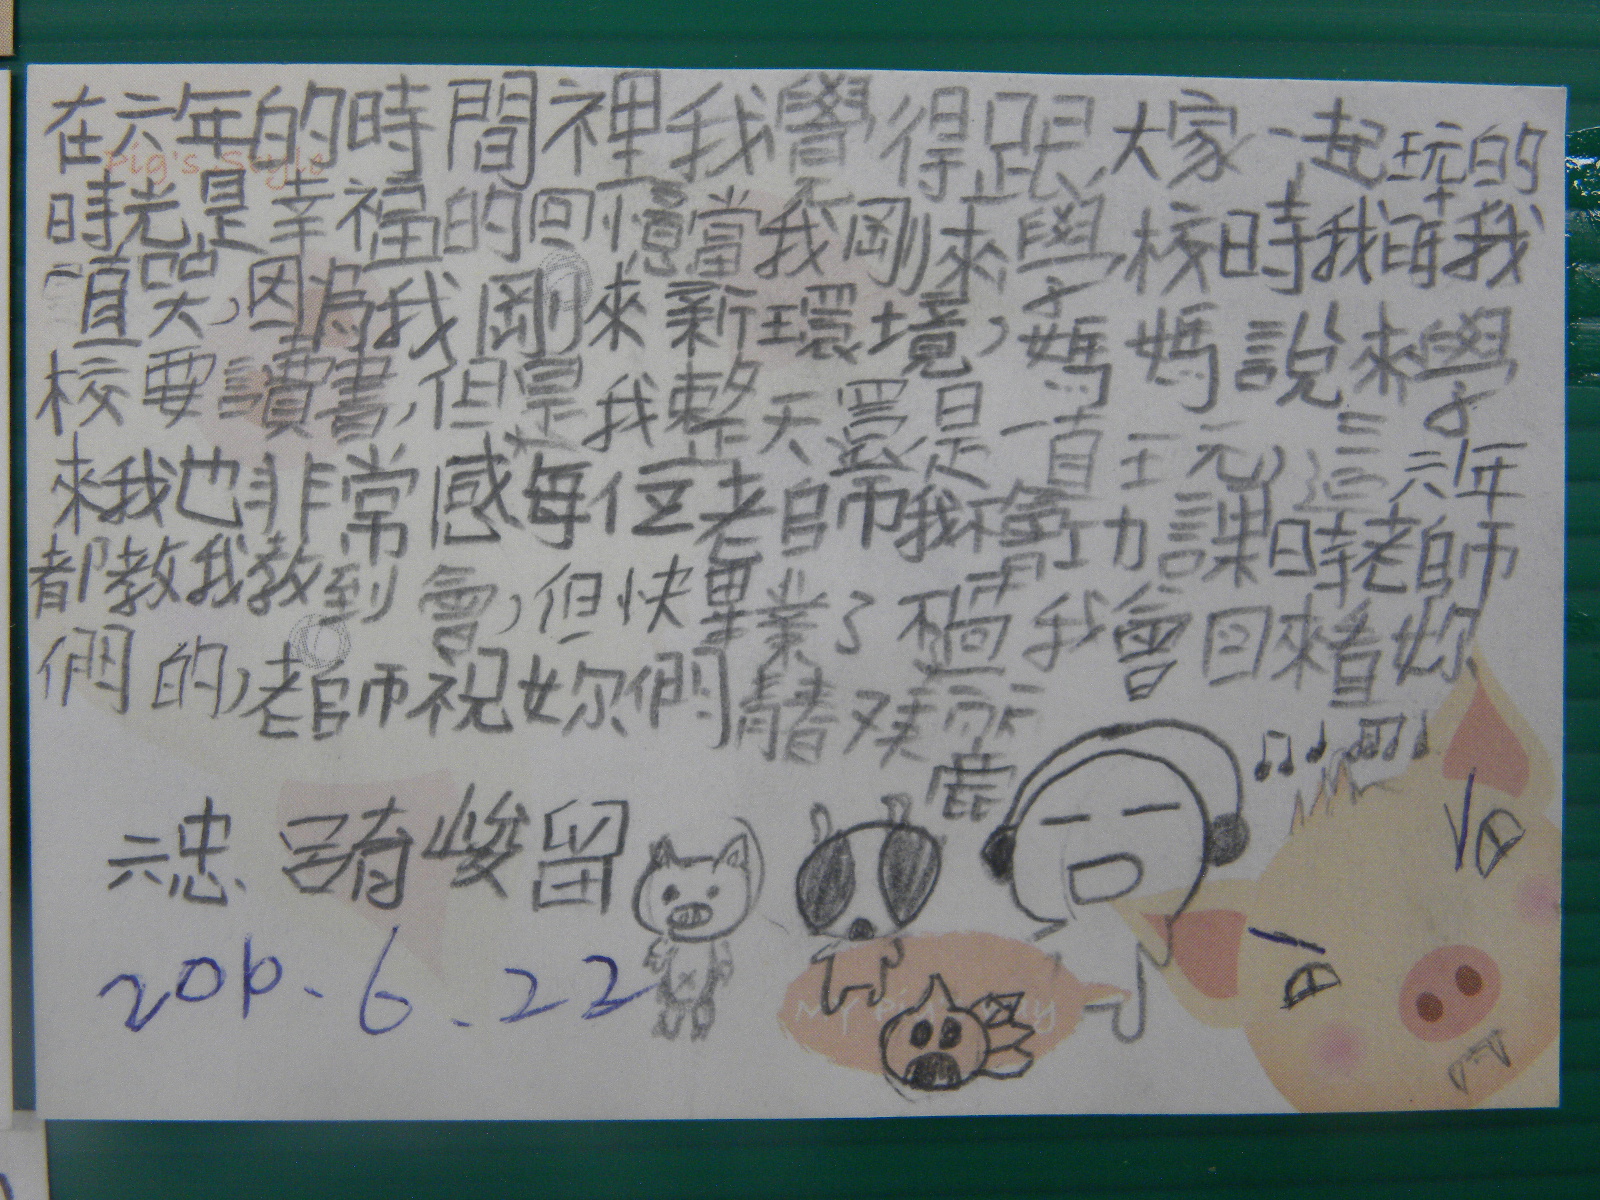 在六年的時間裡我覺得跟大家一起玩的
Pig's Style
時光是幸福的回憶當我剛來學校時我
一直哭,因為我剛來新環境,媽媽說來學
校要讀書,但是我整天還是一直玩,這六年
來我也非常感每位老師我不會功課時老師
都教我教到會,但快畢業了不過我會回來看妳
們的,老師祝妳們青春美麗
六忠 呂宥峻留
2010.6.22